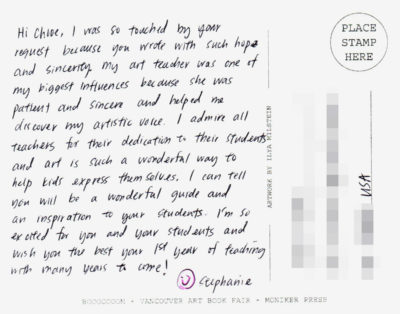 Hi Chloe, I was so touched by your
request because you wrote with such hope
and sincerity. my art teacher was one of
my biggest influences because she was
patient and sincere and helped me
discover my artistic voice. I admire all
teachers for their dedication to their students
and art is such a wonderful way to
help kids express themselves. I can tell
you will be a wonderful guide and
an inspiration to your students. I'm so
excited for you and your students and
wish you the best your 1st year of teaching
with many years to come!
Stephanie
PLACE
STAMP
HERE
ARTWORK BY ILYA MILSTEIN
USA
BOOOOOOOM • VANCOUVER ART BOOK FAIR • MONIKER PRESS